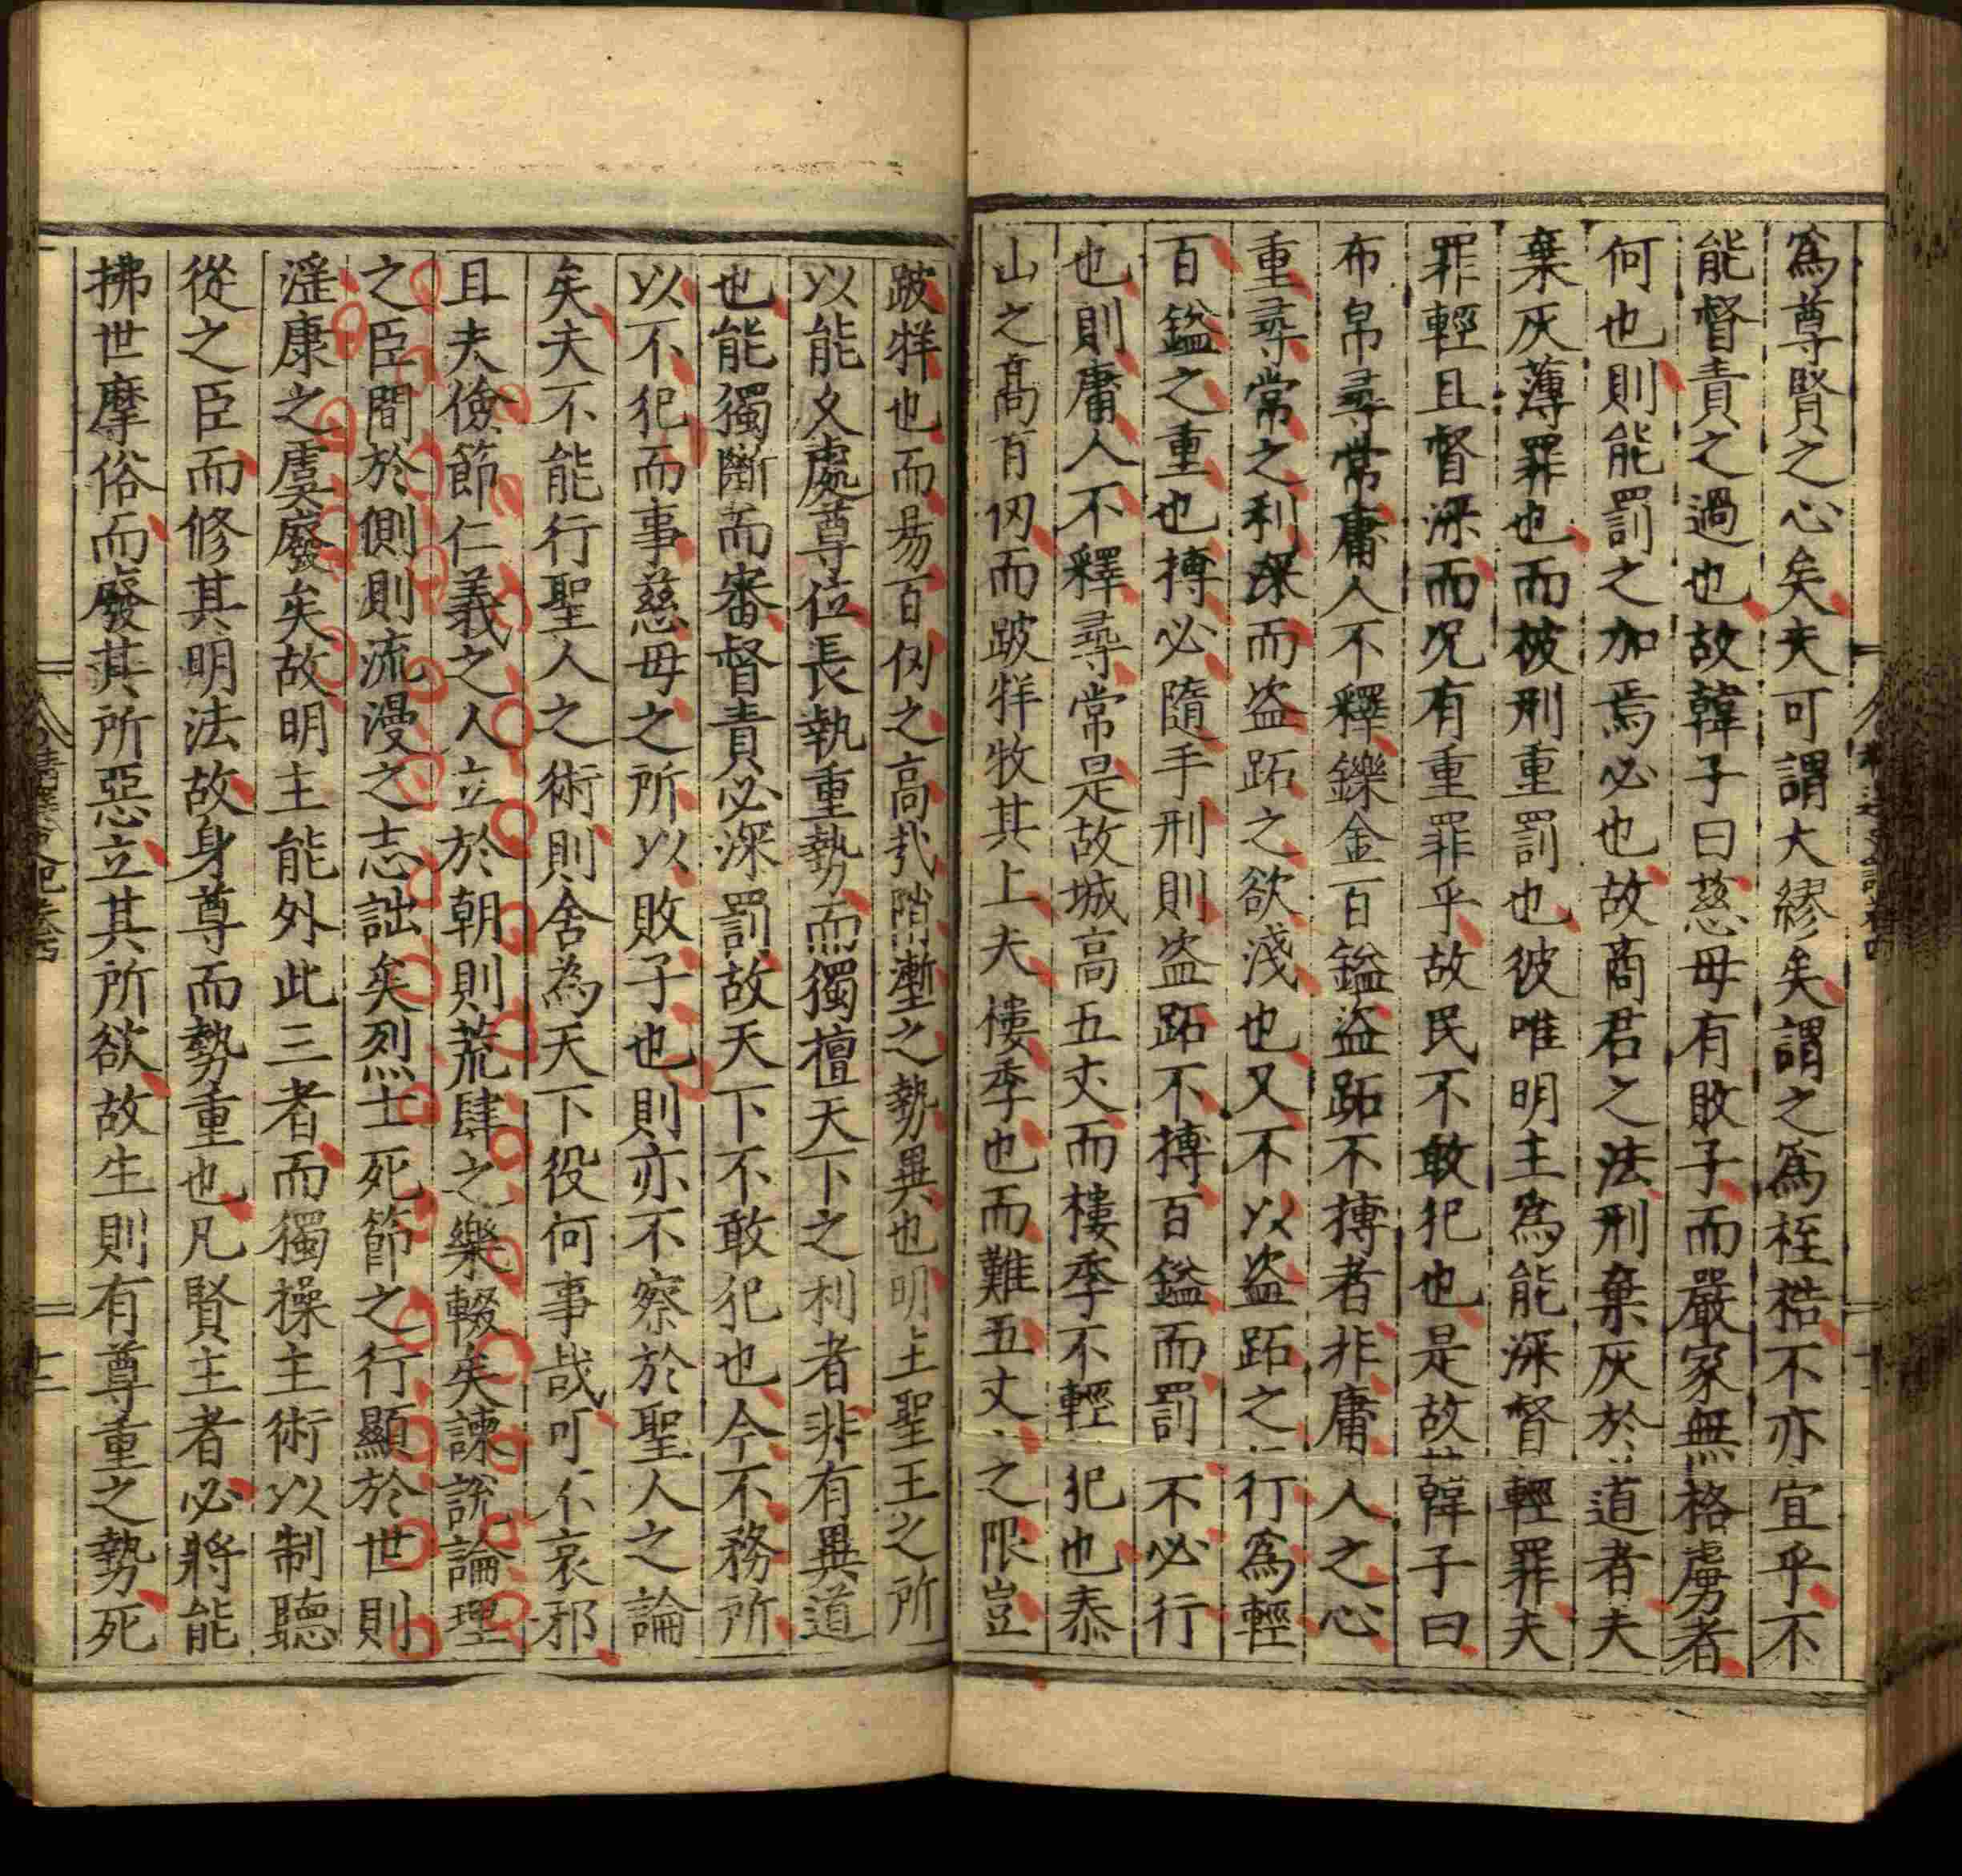 爲尊賢之心矣夫可謂大繆矣謂之爲桎梏不亦宜乎不
能督責之過也故韓子曰慈母有敗子而嚴家無格虜者
何也則能罰之加焉必也故商君之法刑棄灰於道者夫
棄灰薄罪也而被刑重罰也彼唯明主爲能深督輕罪夫
罪輕且督深而況有重罪乎故民不敢犯也是故韓子曰
布帛尋常庸人不釋鑠金百鎰盜跖不搏者非庸人之心
重尋常之利深而盜跖之欲淺也又不以盜跖之行爲輕
百鎰之重也搏必隨手刑則盜跖不搏百鎰而罰不必行
也則庸人不釋尋常是故城高五丈而樓季不輕犯也泰
山之高百仞而跛牂牧其上夫樓季也而難五丈之限豈
跛牂也而易百仞之高哉陗塹之勢異也明主聖王之所
以能久處尊位長執重勢而獨擅天下之利者非有異道
也能獨斷而審督責必深罰故天下不敢犯也今不務所
以不犯而事慈母之所以敗子也則亦不察於聖人之論
矣夫不能行聖人之術則舍為天下役何事哉可不哀邪
且夫儉節仁義之人立於朝則荒肆之樂輟矣諫說論理
之臣間於側則流漫之志詘矣烈士死節之行顯於世則
淫康之虞廢矣故明主能外此三者而獨操主術以制聽
從之臣而修其明法故身尊而勢重也凡賢主者必將能
拂世摩俗而廢其所惡立其所欲故生則有尊重之勢死